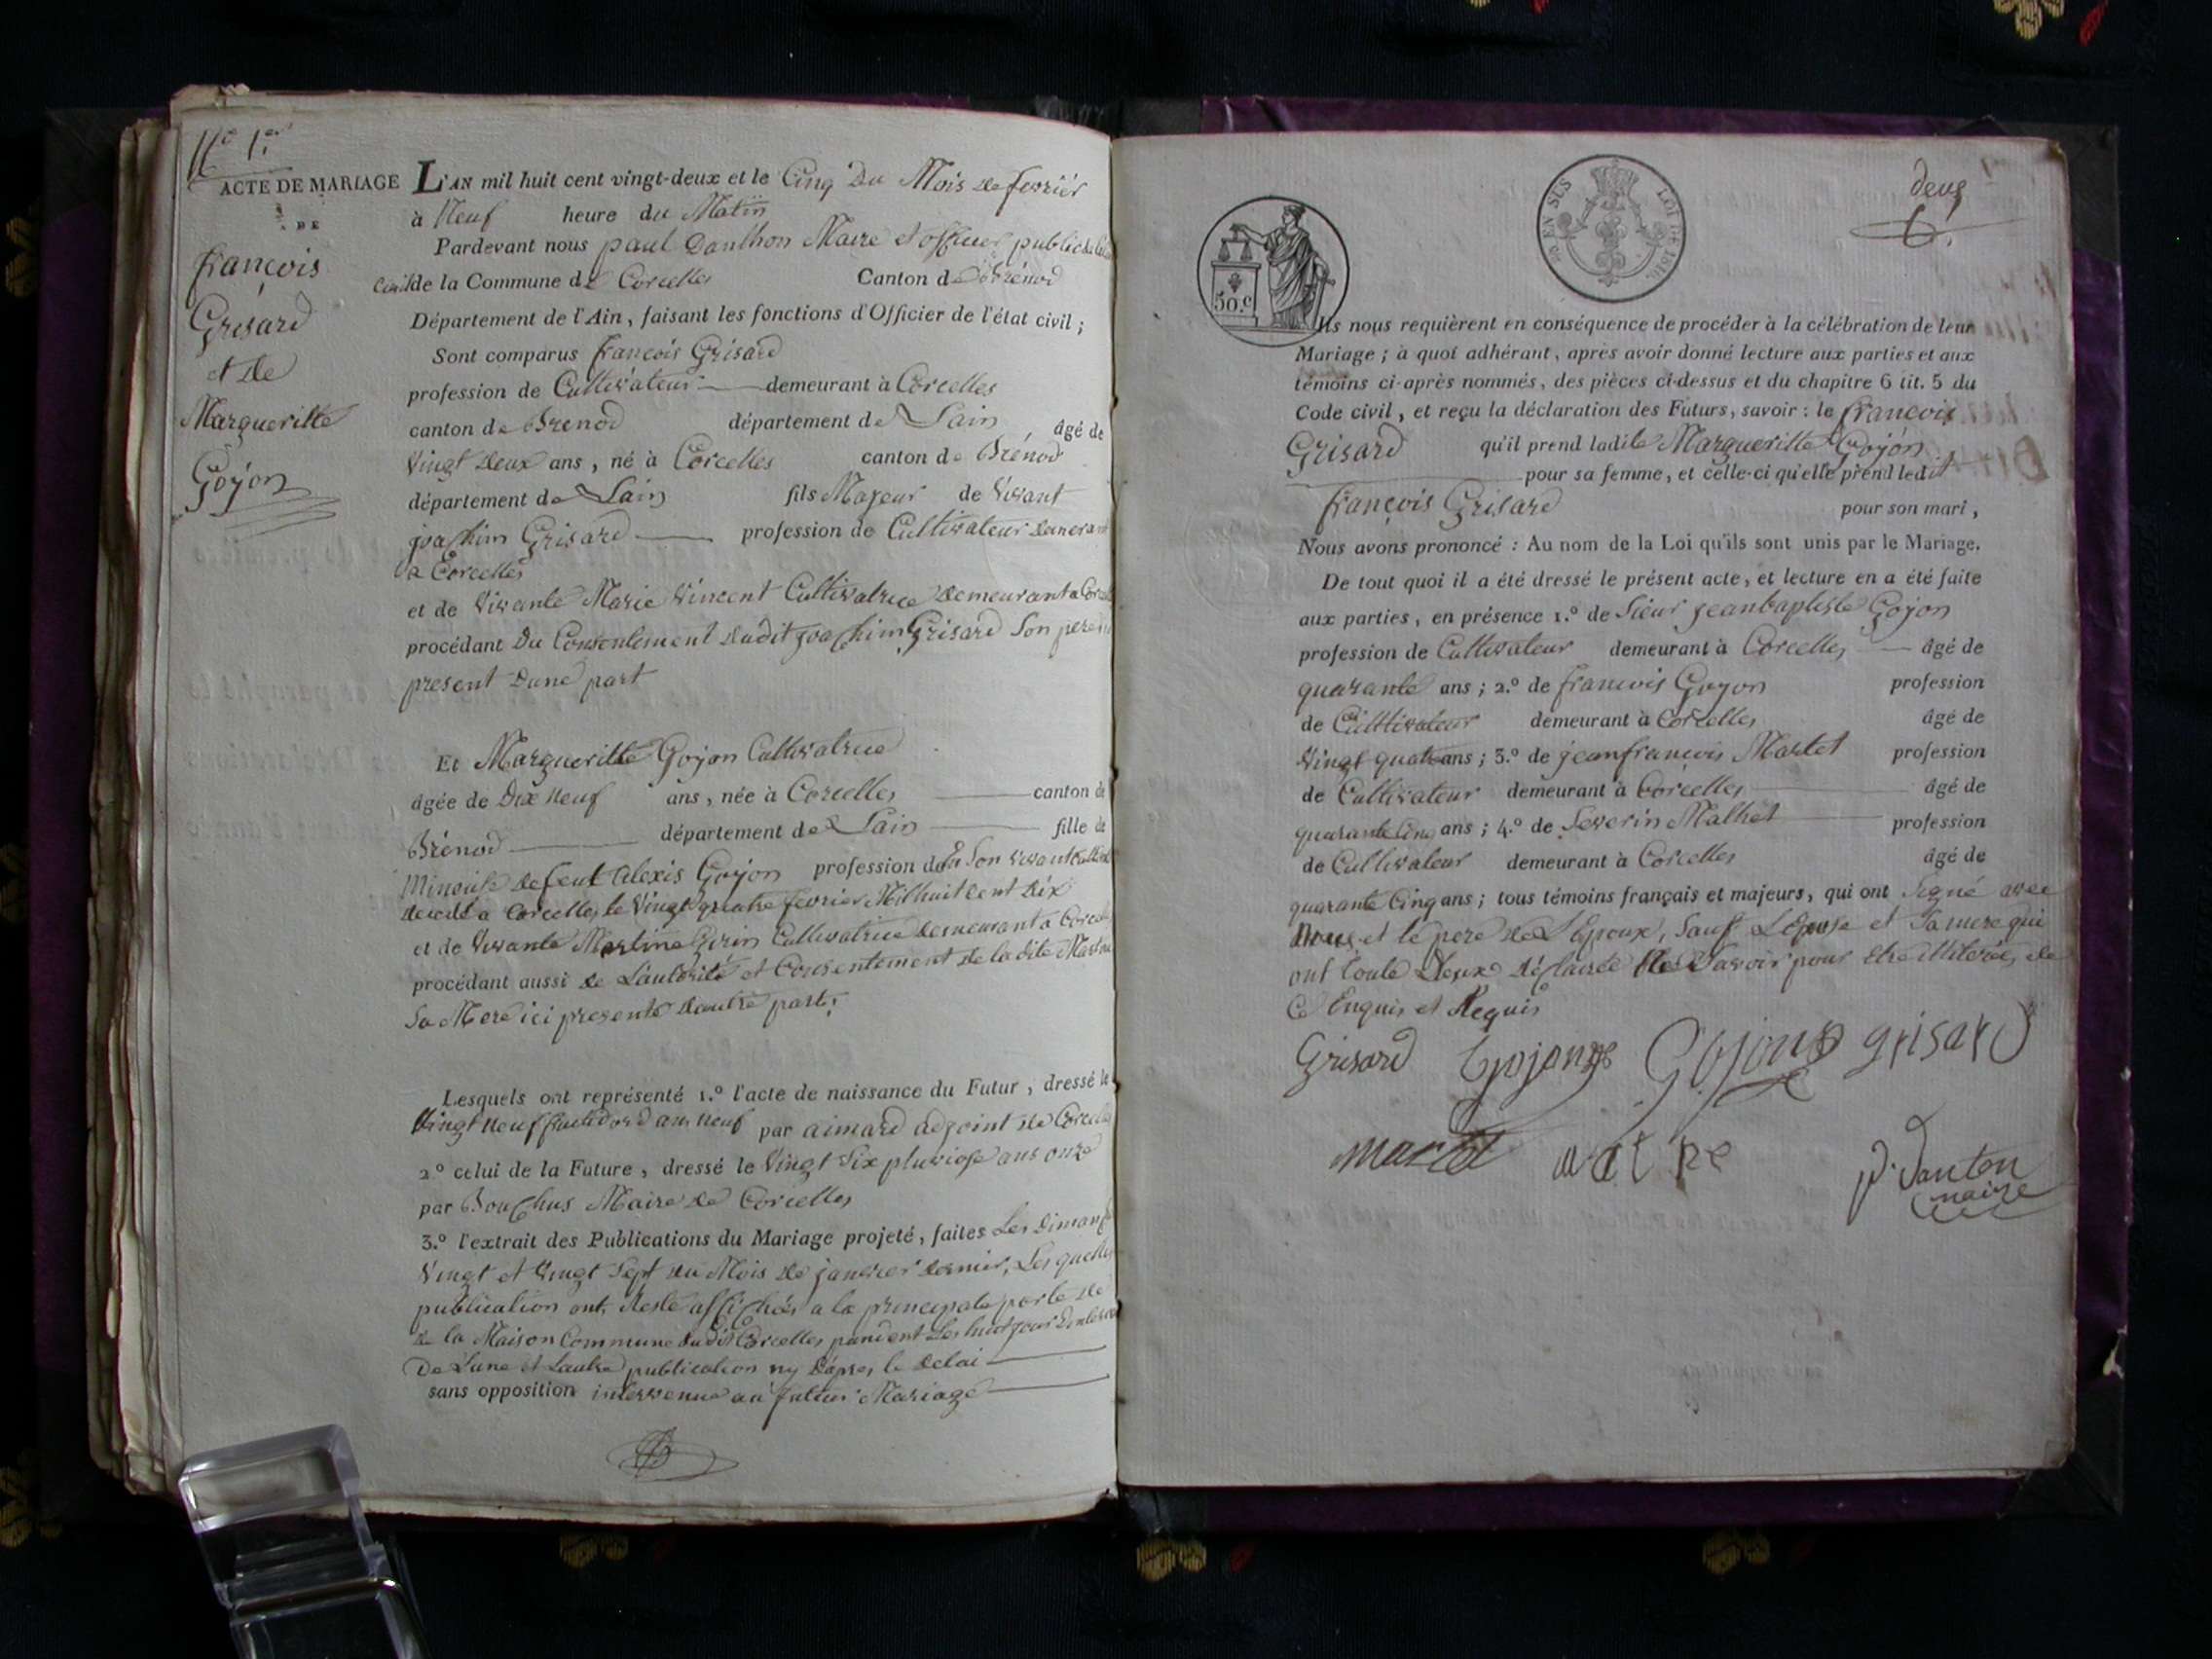 N.o 1.er
ACTE DE MARIAGE
DE
françois
Grisard
et de
Margueritte
Gojon
L'AN mil huit cent vingt-deux et le Cinq Du Mois de fevriér
à Neuf heure du Matin
Pardevant nous paul Danthon Maire et officier public de l'état
civil de la Commune de Corcelles Canton de Brénod
Département de l'Ain, faisant les fonctions d'Officier de l'état civil ;
Sont comparus françois Grisard
profession de Cultivateur demeurant à Corcelles
canton de Brenod département de Lain âgé de
Vingt deux ans, né à Corcelles canton de Brénod
département de Lain fils Majeur de Vivant
joachim Grisard profession de Cultivateur demeurant
a Corcelles
et de Vivante Marie Vincent Cultivatrice demeurant a Corcelles
procédant Du Consentement dudit joachim Grisard Son pere
present Dune part
Et Margueritte Gojon Cultivatrice
âgée de Dix neuf ans, née à Corcelles canton de
Brénod département de Lain fille de
Mineure de feut Alexis Gojon profession de En Son vivant
decedé a Corcelles le Vingt quatre fevrier Mil huit Cent Dix
et de Vivante Martine Girin Cultivatrice demeurant a Corcelles
procédant aussi de Lautorité et Consentement de la dite Martine
Sa Mere ici presente dautre part.
Lesquels ont représenté 1.º l'acte de naissance du Futur, dressé le
Vingt neuf fructidord an neuf par aimard adjoint de Corcelles
2º celui de la Future, dressé le Vingt Six pluviose ans onze
par Bouchus Maire de Corcelles
3.º l'extrait des Publications du Mariage projeté, faites Les Dimanche
Vingt et Vingt Sept du Mois de janvier dernier, Les quelles
publication ont Resté affichés a la principale porte de
de la Maison Commune dudit Corcelles pendent Les huit jour
De Lune et Lautre publication ny Dápres le Delai
sans opposition intervenue au futur Mariage
deux
50.c
50 EN SUS LOI DE 1816
Ils nous requièrent en conséquence de procéder à la célébration de leur
Mariage ; à quoi adhérant, après avoir donné lecture aux parties et aux
témoins ci-après nommés, des pièces ci-dessus et du chapitre 6 tit. 5 du
Code civil, et reçu la déclaration des Futurs, savoir : le françois
Grisard qu'il prend ladite Margueritte Gojon
pour sa femme, et celle-ci qu'elle prend ledit
françois Grisard pour son mari,
Nous avons prononcé : Au nom de la Loi qu'ils sont unis par le Mariage.
De tout quoi il a été dressé le présent acte, et lecture en a été faite
aux parties, en présence 1.º de Sieur jeanbaptiste Gojon
profession de Cultivateur demeurant à Corcelles âgé de
quarante ans ; 2.º de francois Gojon profession
de Cultivateur demeurant à Corcelles âgé de
Vingt quatre ans ; 3.º de jeanfrançois Martet profession
de Cultivateur demeurant à Corcelles âgé de
quarante Cinq ans ; 4.º de Severin Malhet profession
de Cultivateur demeurant à Corcelles âgé de
quarante Cinq ans ; tous témoins français et majeurs, qui ont Signé avec
Nous et le pere de L'Epoux, Sauf L'Epouse et Sa mere qui
ont toute Deux déclairée Ne Savoir pour Etre illiterées de
Ce Enquis et Requis
Grisard Gojon Gojon grisard
martet P. Danton
maire